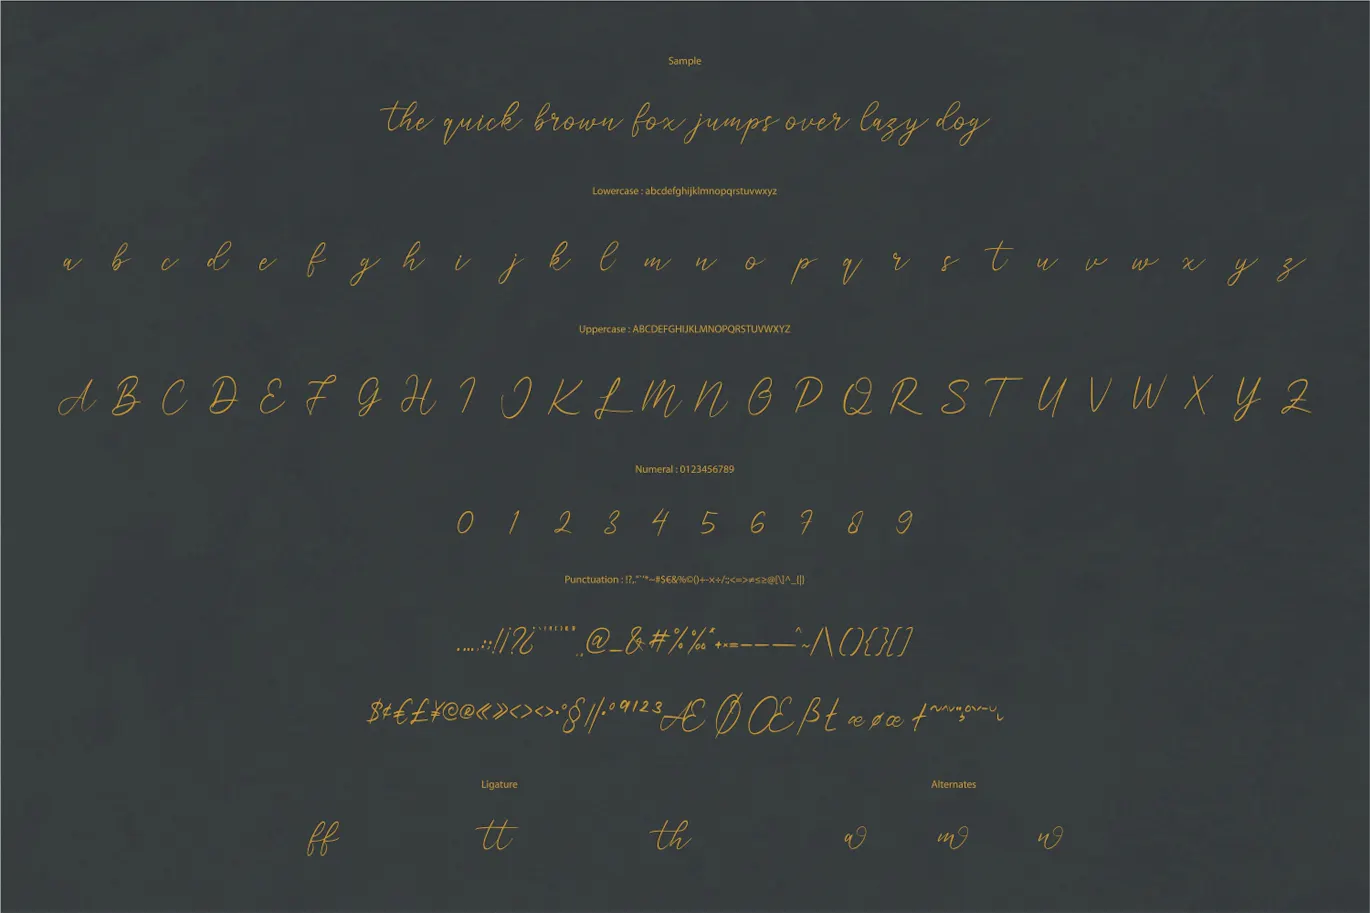 Sample
the quick brown fox jumps over lazy dog
Lowercase : abcdefghijklmnopqrstuvwxyz
a b c d e f g h i j k l m n o p q r s t u v w x y z
Uppercase : ABCDEFGHIJKLMNOPQRSTUVWXYZ
A B C D E F G H I J K L M N O P Q R S T U V W X Y Z
Numeral : 0123456789
0 1 2 3 4 5 6 7 8 9
Punctuation : !?,."'"*~#$€&%©()+-×÷/:;<=>≠≤≥@[\]^_{|}
@_&#%‰*+×=———^~/\(){}[]
$¢€£¥©®«»‹›<>·°§¦|•ºª123ÆØŒßłæøœ†
Ligature Alternates
ff tt th a m n